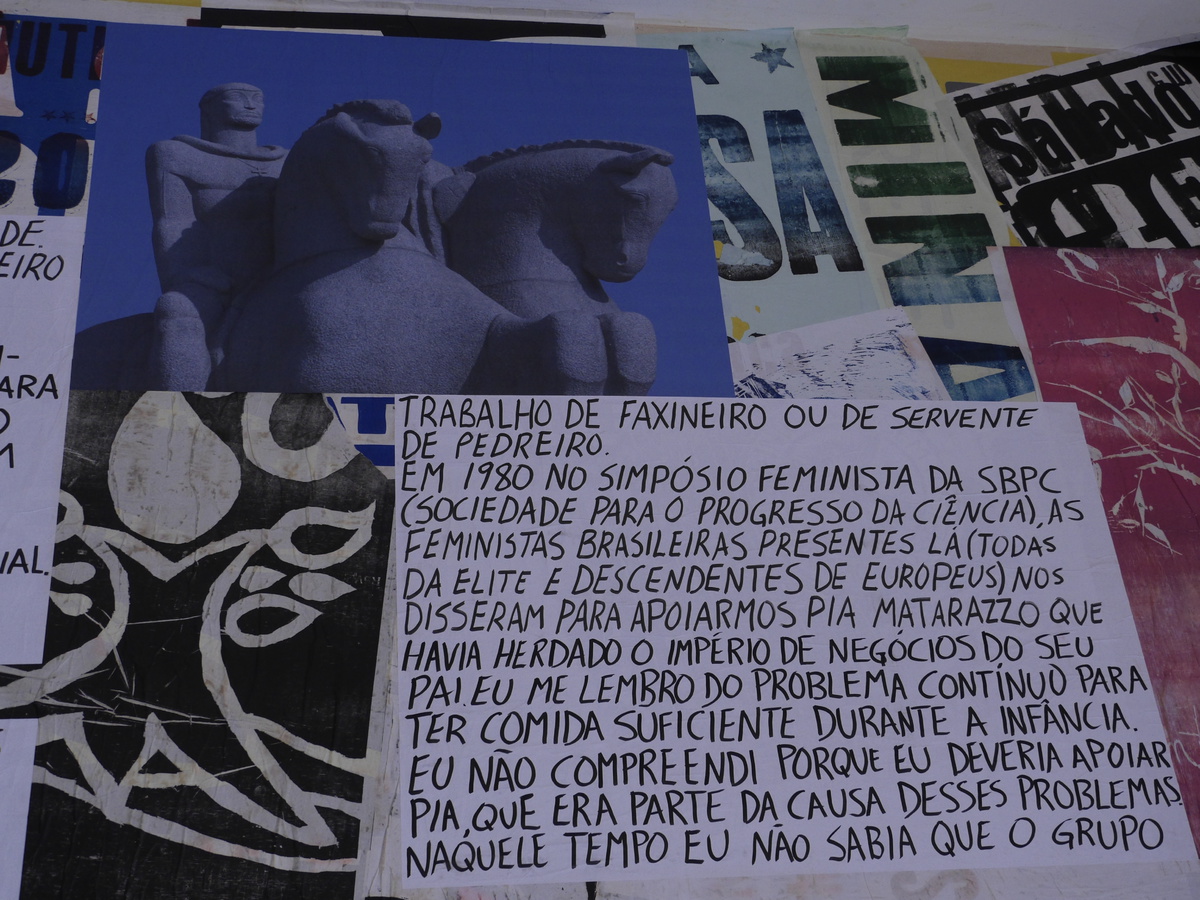 DE.
EIRO
ARA
IAL.
SA
MINA
Sábado
TRABALHO DE FAXINEIRO OU DE SERVENTE
DE PEDREIRO.
EM 1980 NO SIMPÓSIO FEMINISTA DA SBPC
(SOCIEDADE PARA O PROGRESSO DA CIÊNCIA), AS
FEMINISTAS BRASILEIRAS PRESENTES LÁ (TODAS
DA ELITE E DESCENDENTES DE EUROPEUS) NOS
DISSERAM PARA APOIARMOS PIA MATARAZZO QUE
HAVIA HERDADO O IMPÉRIO DE NEGÓCIOS DO SEU
PAI. EU ME LEMBRO DO PROBLEMA CONTÍNUO PARA
TER COMIDA SUFICIENTE DURANTE A INFÂNCIA.
EU NÃO COMPREENDI PORQUE EU DEVERIA APOIAR
PIA, QUE ERA PARTE DA CAUSA DESSES PROBLEMAS.
NAQUELE TEMPO EU NÃO SABIA QUE O GRUPO